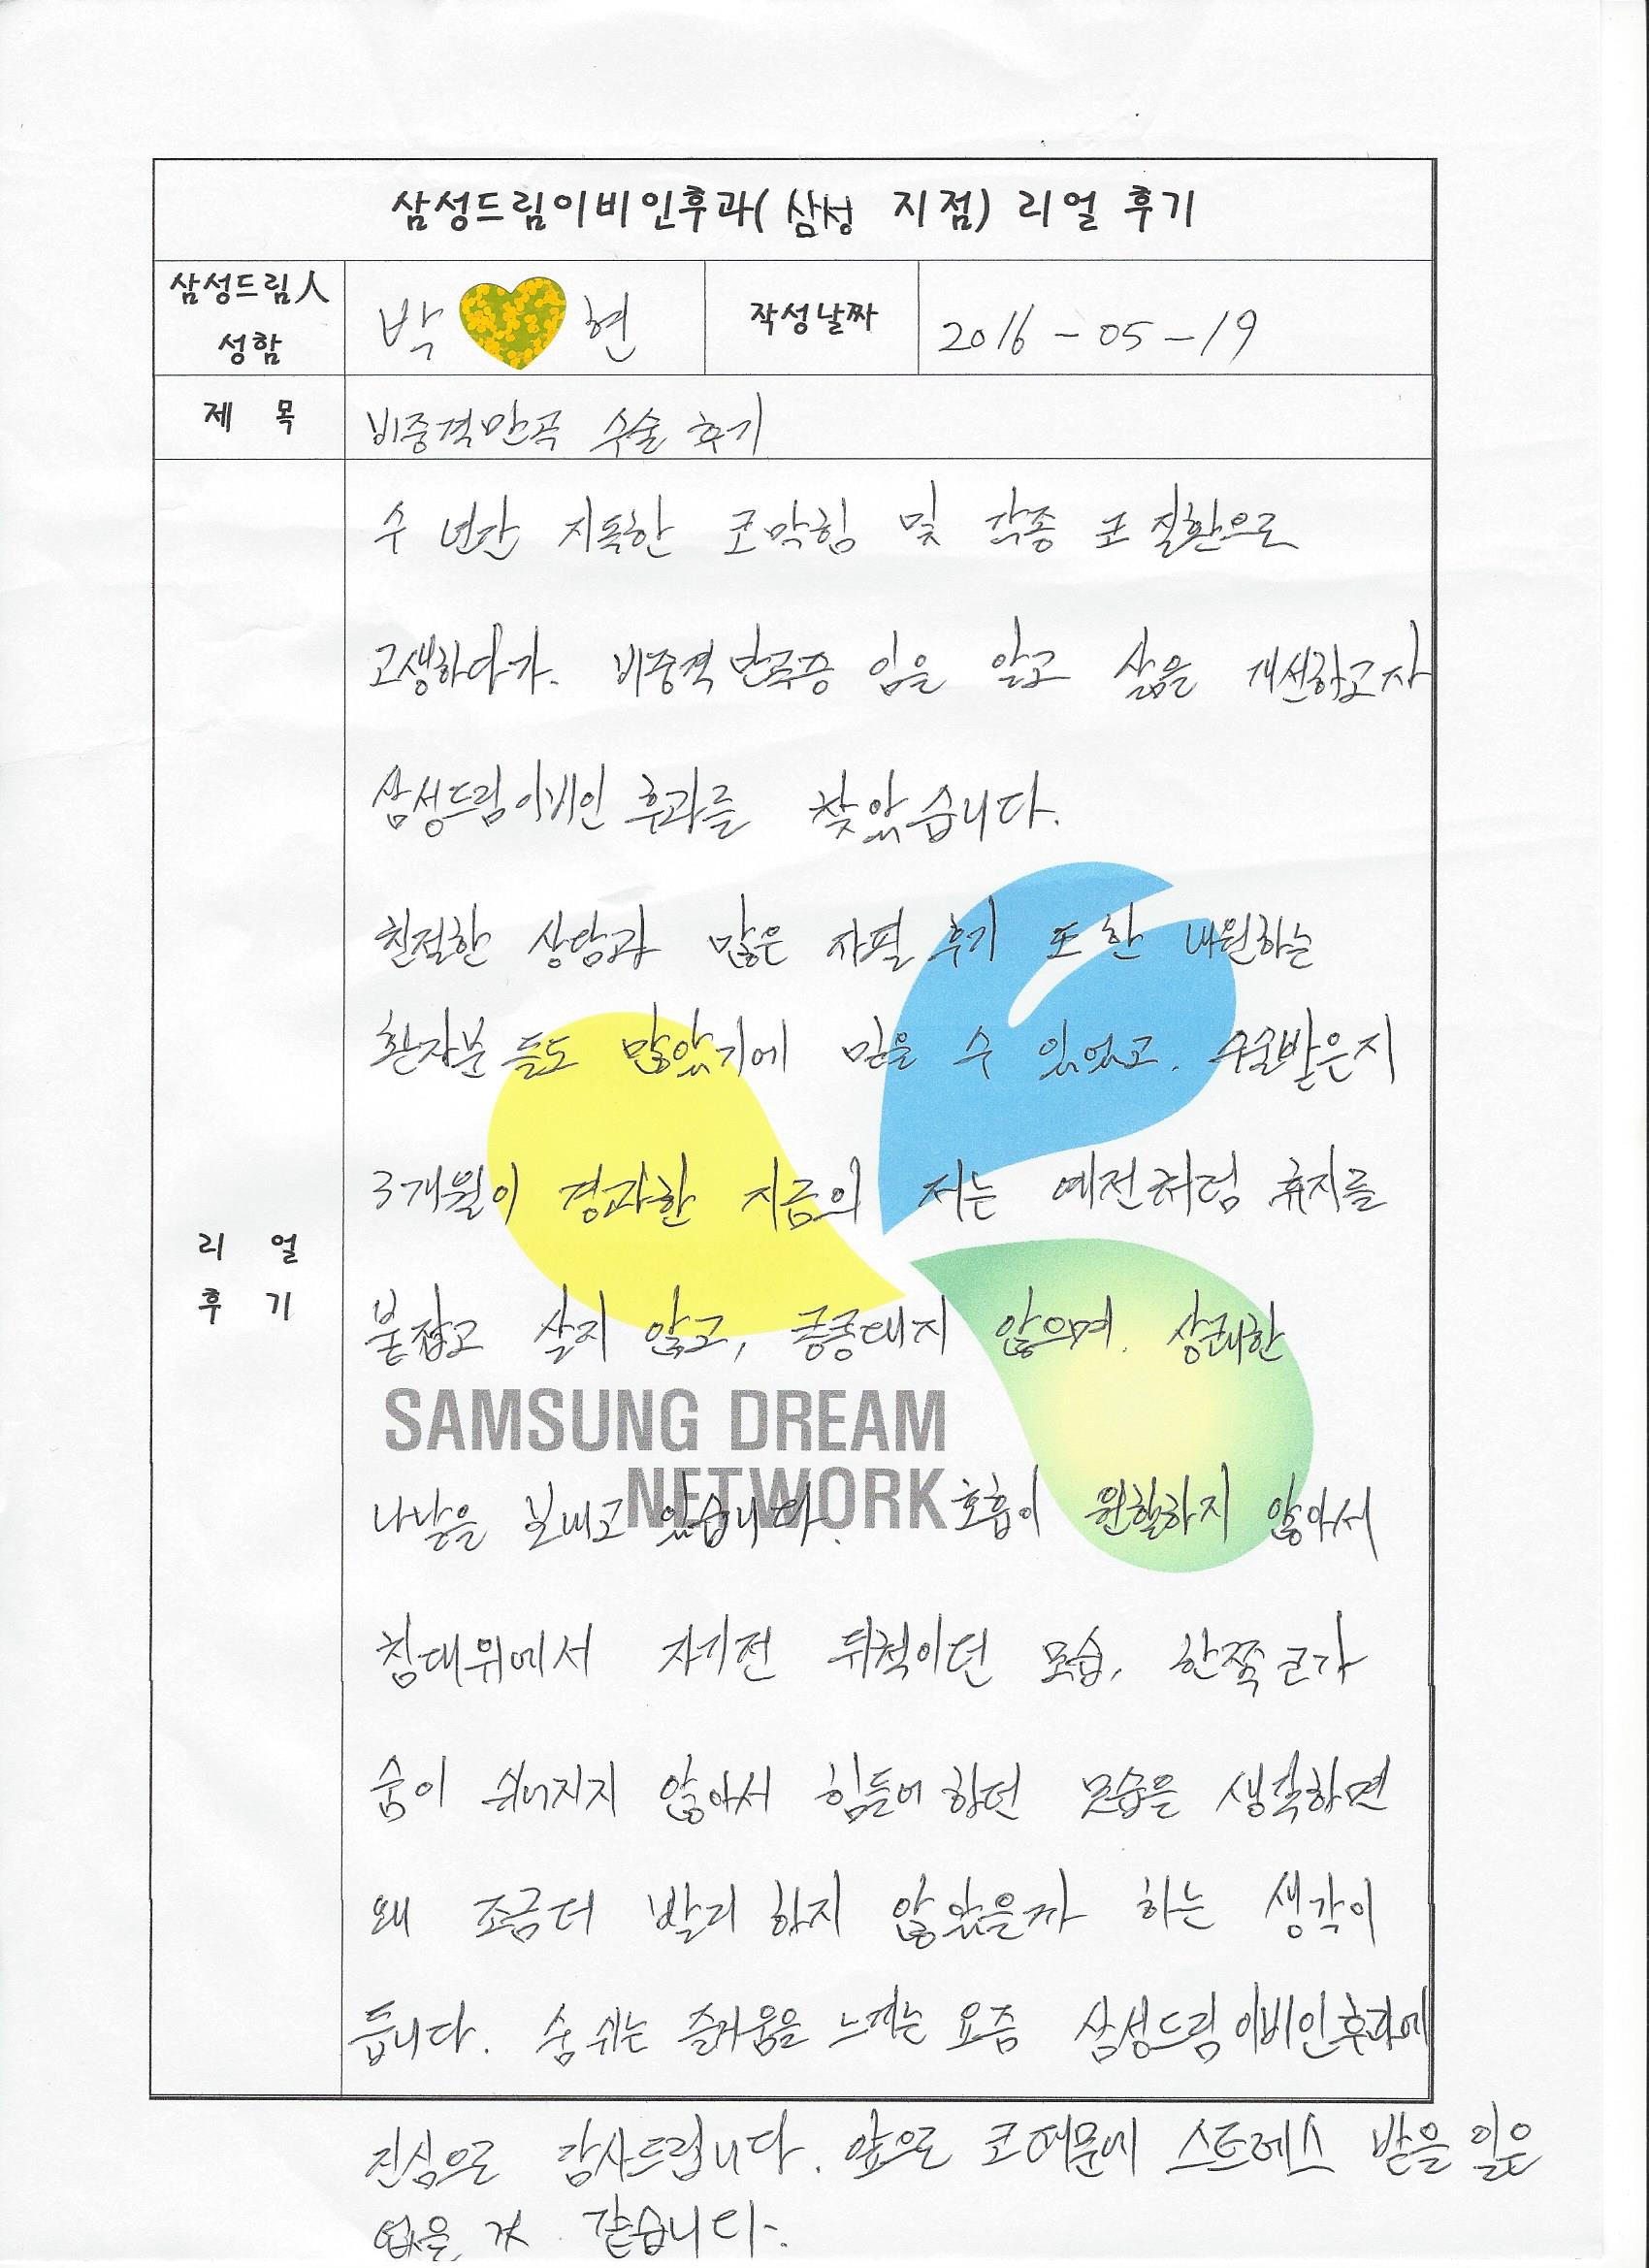 삼성드림이비인후과( 삼성 지점) 리얼 후기
삼성드림人 성함
박 현
작성날짜
2016 - 05 - 19
제 목
비중격만곡 수술 후기
리 얼
후 기
수 년간 지독한 코막힘 및 각종 코 질환으로
고생하다가. 비중격 만곡증 임을 알고 삶을 개선하고자
삼성드림이비인 후과를 찾았습니다.
친절한 상담과 많은 자필 후기 또 한 내원하는
환자분 들도 많았기에 믿을 수 있었고. 수술받은지
3개월이 경과한 지금의 저는 예전처럼 휴지를
붙잡고 살지 않고, 킁킁대지 않으며. 상쾌한
SAMSUNG DREAM
NETWORK
나날을 보내고 있습니다. 호흡이 원활하지 않아서
침대위에서 자기전 뒤척이던 모습, 한쪽 코가
숨이 쉬어지지 않아서 힘들어 하던 모습을 생각하면
왜 조금더 빨리 하지 않았을까 하는 생각이
듭니다. 숨 쉬는 즐거움을 느끼는 요즘 삼성드림 이비인후과에
진심으로 감사드립니다. 앞으로 코 때문에 스트레스 받을 일은
없을 것 같습니다-